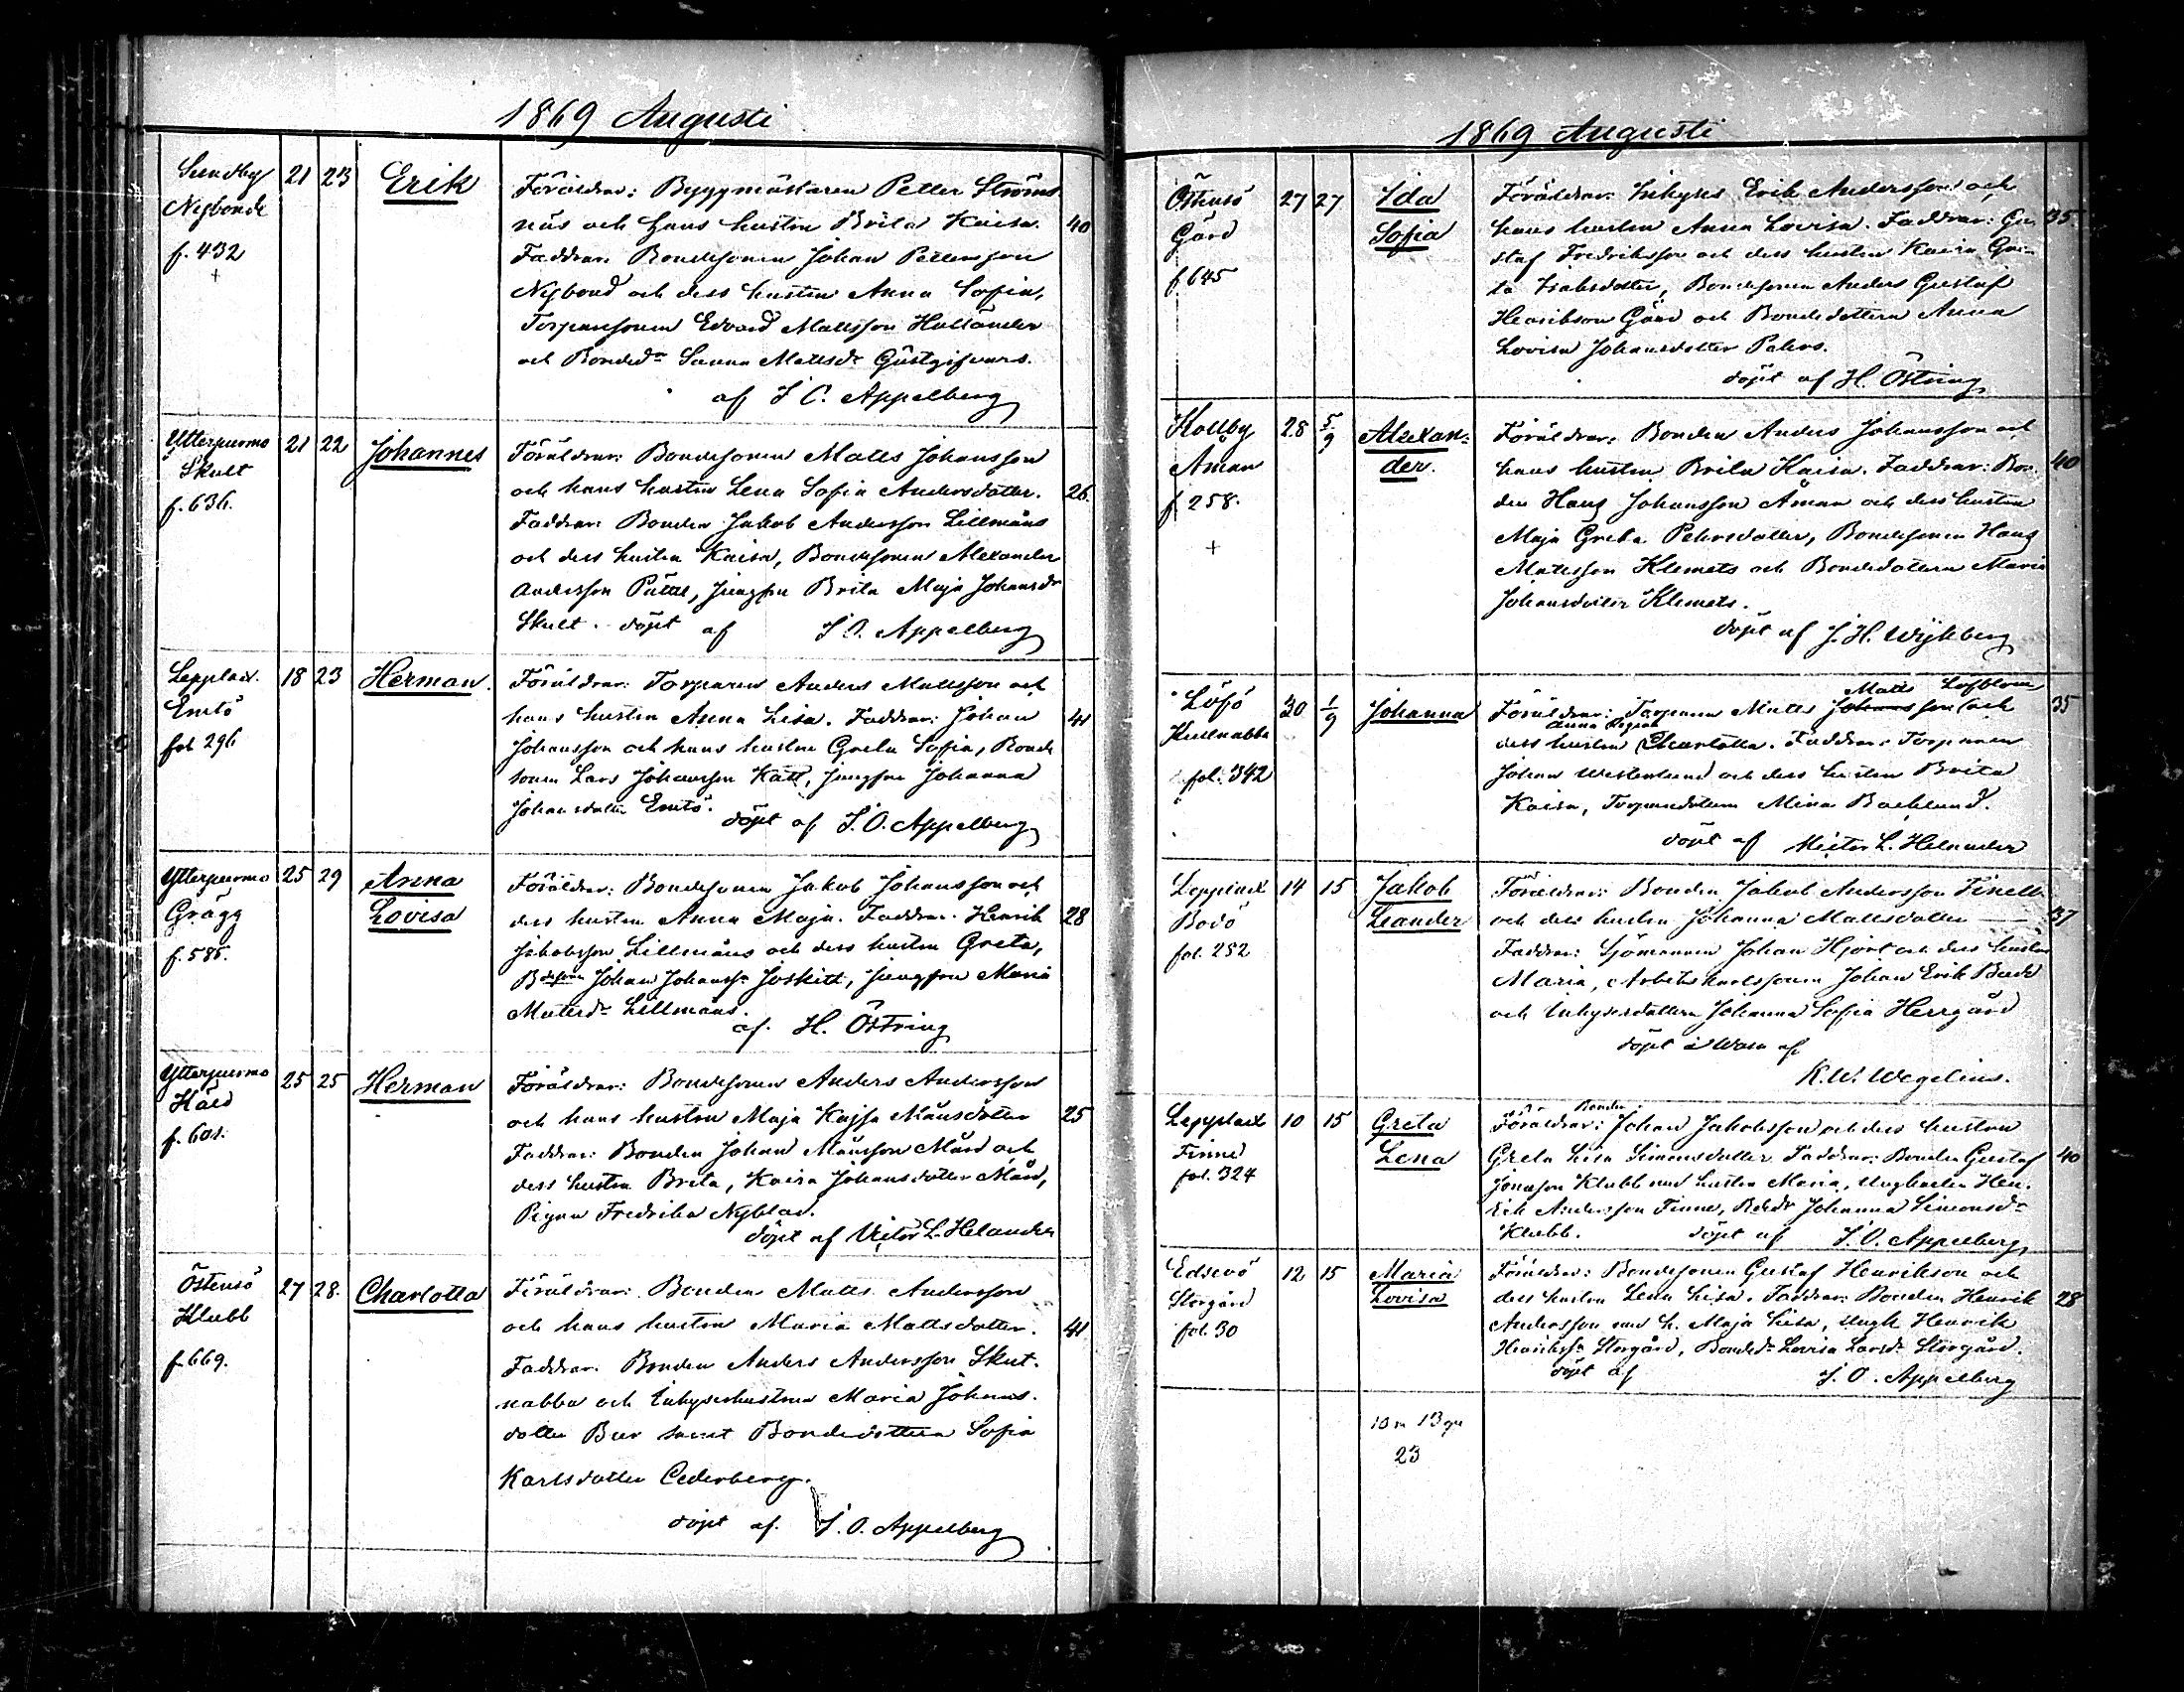 1869 Augusti
Sundby 21 23 Erik Föräldrar: Byggmästaren Petter Ströms
Nybond näs och hans hustru Brita Kaisa. 40
f. 432 Faddrar: Bondesonen Johan Pettersson
+ Nybond och dess hustru Anna Sofia,
Torparesonen Edvard Mattsson Holländer
och Bonded:r Sanna Mattsdr Gästgifvars.
af J O. Appelberg
Ytterpurmo 21 22 Johannes Föräldrar: Bondesonen Matts Johansson
Skult och hans hustru Lena Sofia Andersdotter. 26.
f. 636. Faddrar: Bonden Jakob Andersson Lillmåns
och dess hustru Kaisa, Bondesonen Alexander
Andersson Puttas, Jungfru Brita Maja Johansdr
Skult. döpt af J O. Appelberg
Lepplax. 18 23 Herman. Föräldrar: Torparen Anders Mattsson och
Emtö hans hustru Anna Lisa. Faddrar: Johan 41
fol 296 Johansson och hans hustru Greta Sofia, Bonde
sonen Lars Johansson Kass, Jungfru Johanna
Johansdotter Emtö. döpt af J. O. Appelberg
Ytterpurmo 25 29 Anna Föräldrar: Bondesonen Jakob Johansson och
Grägg Lovisa dess hustru Anna Maja. Faddrar: Henrik 28
f. 585. Jakobsson Lillmåns och dess hustru Greta,
Bdesonen Johan Johanss. Joskitt, Jungfru Maria
Mattsdr Lillmåns.
af. H. Östring
Ytterpurmo 25 25 Herman Föräldrar: Bondesonen Anders Andersson
Hård och hans hustru Maja Kajsa Månsdotter 25
f. 601. Faddrar: Bonden Johan Månsson Mård och
dess hustru Brita, Kaisa Johansdotter Mård,
Pigan Fredrika Nyblad.
döpt af Victor L. Helander
Östensö 27 28. Charlotta Föräldrar: Bonden Matts Andersson
Klubb och hans hustru Maria Mattsdotter. 41
f. 669. Faddrar: Bonden Anders Andersson Skut-
nabba och Inhyseshustrun Maria Johans-
dotter Bur samt Bondedottern Sofia
Karlsdotter Cederberg.
döpt af. J. O. Appelberg
1869 Augusti
Östensö 27 27 Ida Föräldrar: Inhyses Erik Andersson och
Gård Sofia hans hustru Anna Lovisa. Faddrar: Gu- 35.
f. 645 staf Fredriksson och dess hustru Kaisa Gre-
ta Isaksdotter, Bondesonen Anders Gustaf
Henrikson Gård och Bondedottern Anna
Lovisa Johansdotter Pahos.
döpt af H. Östring
Kållby 28 5/9 Alexan- Föräldrar: Bonden Anders Johansson och
Åman der. hans hustru Brita Kaisa. Faddrar: Bon- 40
f. 258. den Hans Johansson Åman och dess hustru
+ Maja Greta Pehrsdotter, Bondesonen Hans
Mattsson Klemets och Bondedottern Maria
Johansdotter Klemets.
döpt af J. H. Wijkberg
Matts Löfblom
Löfö 30 1/9 Johanna Föräldrar: Torparen Matts Johansson och 35
Anna Regina
Kullnabba dess hustru Charlotta. Faddrar: Torparen
fol. 342 Johan Westerlund och dess hustru Brita
Kaisa, Torparedottern Mina Backlund.
döpt af Victor L. Helander
Lepplax 14 15 Jakob Föräldrar: Bonden Jakob Andersson Finell
Bodö Leander och dess hustru Johanna Mattsdotter 37
fol. 252 Faddrar: Sjömannen Johan Hjort och dess hustru
Maria, Arbetskarlssonen Johan Erik Back
och Inhysesdottern Johanna Sofia Herrgård
döpt i Wasa af
K. W. Wegelius.
Bonden
Lepplax 10 15 Greta Föräldrar: Johan Jakobsson och dess hustru
Finne Lena Greta Lisa Simonsdotter. Faddrar: Bonden Gustaf 40
fol. 324 Jonasson Klubb med hustru Maria, Ungkarlen Hen-
Erik Andersson Finne, Bdedr Johanna Simonsdr
Klubb. döpt af J. O. Appelberg
Edsevö 12 15 Maria Föräldrar: Bondesonen Gustaf Henrikson och
Storgård Lovisa dess hustru Lena Lisa. Faddrar: Bonden Henrik 28
fol. 30 Andersson med h. Maja Lisa, Ungk Henrik
Henrikss. Storgård, Bondedr Lovisa Larsdr Storgård.
döpt af J. O. Appelberg
10 m 13 qv
23